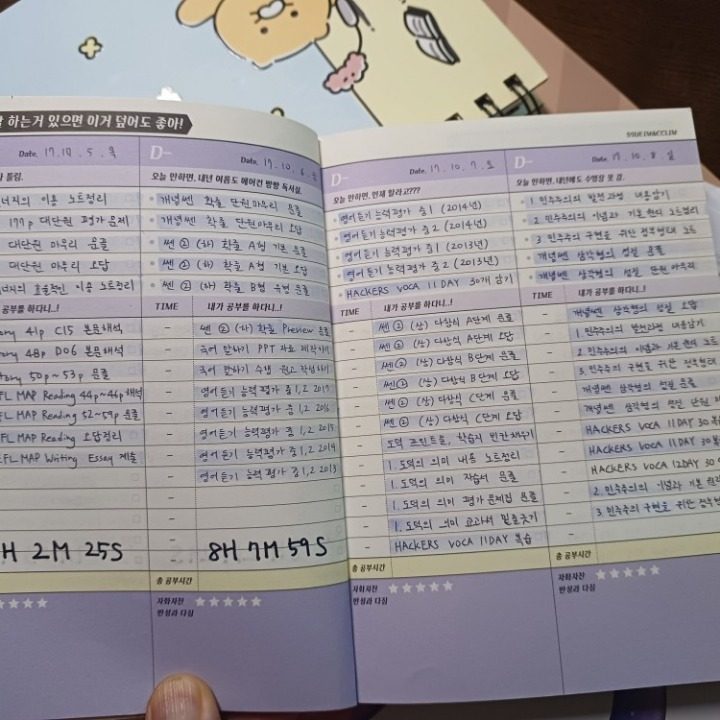 하는거 있으면 이거 덮어도 좋아!
Date. 17. 10. 5. 목
너지의 이용 노트정리
177p 대단원 평가문제
대단원 마무리 문풀
대단원 마무리 오답
너지의 효율적인 이용 노트정리
공부를 하다니..!
41p C15 본문해석
48p D06 본문해석
50p~53p 문풀
FL MAP Reading 44p~46p 해석
FL MAP Reading 52~59p 문풀
FL MAP Reading 오답정리
FL MAP Writing Essay 제출
H 2M 25S
D-
Date. 17. 10. 6.
오늘 안하면, 내년 여름도 에어컨 빵빵 독서실.
개념쎈 확률 단원마무리 문풀
개념쎈 확률 단원마무리 오답
쎈 ② (하) 확률 A형 기본 문풀
쎈 ② (하) 확률 A형 기본 오답
쎈 ② (하) 확률 B형 유형 문풀
TIME 내가 공부를 하다니..!
쎈 ② (하) 확률 Preview 문풀
국어 말하기 PPT 자료 제작하기
국어 말하기 수행 원고 작성하기
영어듣기 능력평가 중1,2 2017
영어듣기 능력평가 중1,2 2016
영어듣기 능력평가 중1,2 2015
영어듣기 능력평가 중1,2 2014
영어듣기 능력평가 중1,2 2013
8H 7M 59S
총 공부시간
자화자찬
반성과 다짐
D-
Date. 17. 10. 7. 토
오늘 안하면, 언제 할라고????
영어듣기능력평가 중1 (2014년)
영어듣기능력평가 중2 (2014년)
영어듣기능력평가 중1 (2013년)
영어듣기능력평가 중2 (2013년)
HACKERS VOCA 11DAY 30개 암기
TIME 내가 공부를 하다니..!
쎈② (상) 다항식 A단계 문풀
쎈② (상) 다항식 A단계 오답
쎈② (상) 다항식 B단계 문풀
쎈② (상) 다항식 B단계 오답
쎈② (상) 다항식 C단계 문풀
쎈② (상) 다항식 C단계 오답
도덕 프린트물, 학습지 빈칸채우기
1. 도덕의 의미 내용 노트정리
1. 도덕의 의미 자습서 문풀
1. 도덕의 의미 평가문제집 문풀
1. 도덕의 의미 교과서 밑줄긋기
HACKERS VOCA 11DAY 복습
총 공부시간
자화자찬
반성과 다짐
D-
Date. 17. 10. 8. 일
오늘 안하면, 내년에도 수영장 못 감.
1. 민주주의의 발전과정 내용암기
2. 민주주의의 이념과 기본 원리 노트정리
3. 민주주의 구현을 위한 정부형태 노트
개념쎈 삼각형의 성질 문풀
개념쎈 삼각형의 성질 단원 마무리
TIME 내가 공부를 하다니..!
개념쎈 삼각형의 성질 오답
1. 민주주의의 발전과정 내용암기
2. 민주주의의 이념과 기본원리 노트
3. 민주주의 구현을 위한 정부형태
개념쎈 삼각형의 성질 문풀
개념쎈 삼각형의 성질 단원 마
HACKERS VOCA 11DAY 30
HACKERS VOCA 11DAY 30
HACKERS VOCA 12DAY 30
2. 민주주의의 이념과 기본 원리
3. 민주주의 구현을 위한 정부형
총 공부시간
자화자찬
반성과 다짐